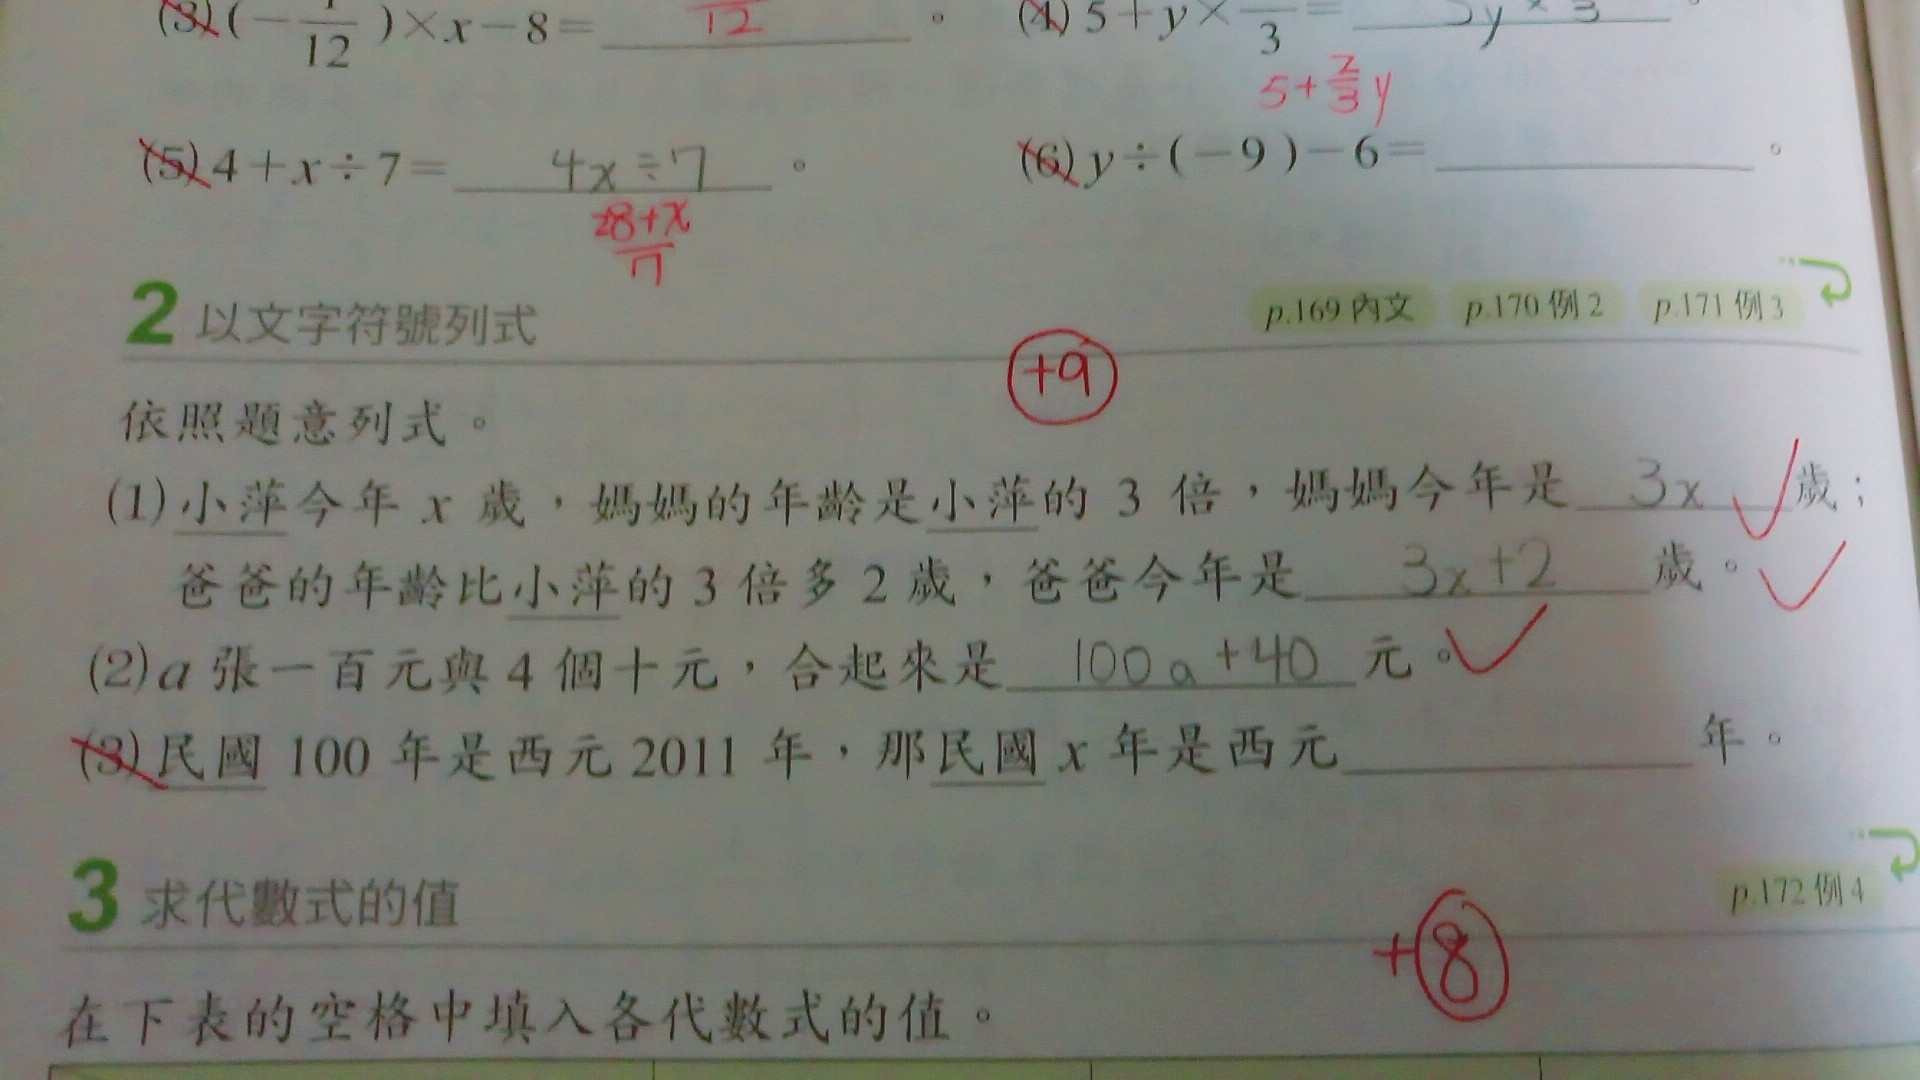 (3)(-1/12)×x-8= 12 。 (4) 5+y× /3= 3
5+2/3 y
(5) 4+x÷7= 4x÷7 。 (6) y÷(-9)-6= 。
28+x/7
2 以文字符號列式 p.169 內文 p.170 例 2 p.171 例 3
+9
依照題意列式。
(1) 小萍今年 x 歲，媽媽的年齡是小萍的 3 倍，媽媽今年是 3x 歲；
爸爸的年齡比小萍的 3 倍多 2 歲，爸爸今年是 3x+2 歲。
(2) a 張一百元與 4 個十元，合起來是 100a+40 元。
(3) 民國 100 年是西元 2011 年，那民國 x 年是西元 年。
3 求代數式的值 p.172 例 4
+8
在下表的空格中填入各代數式的值。